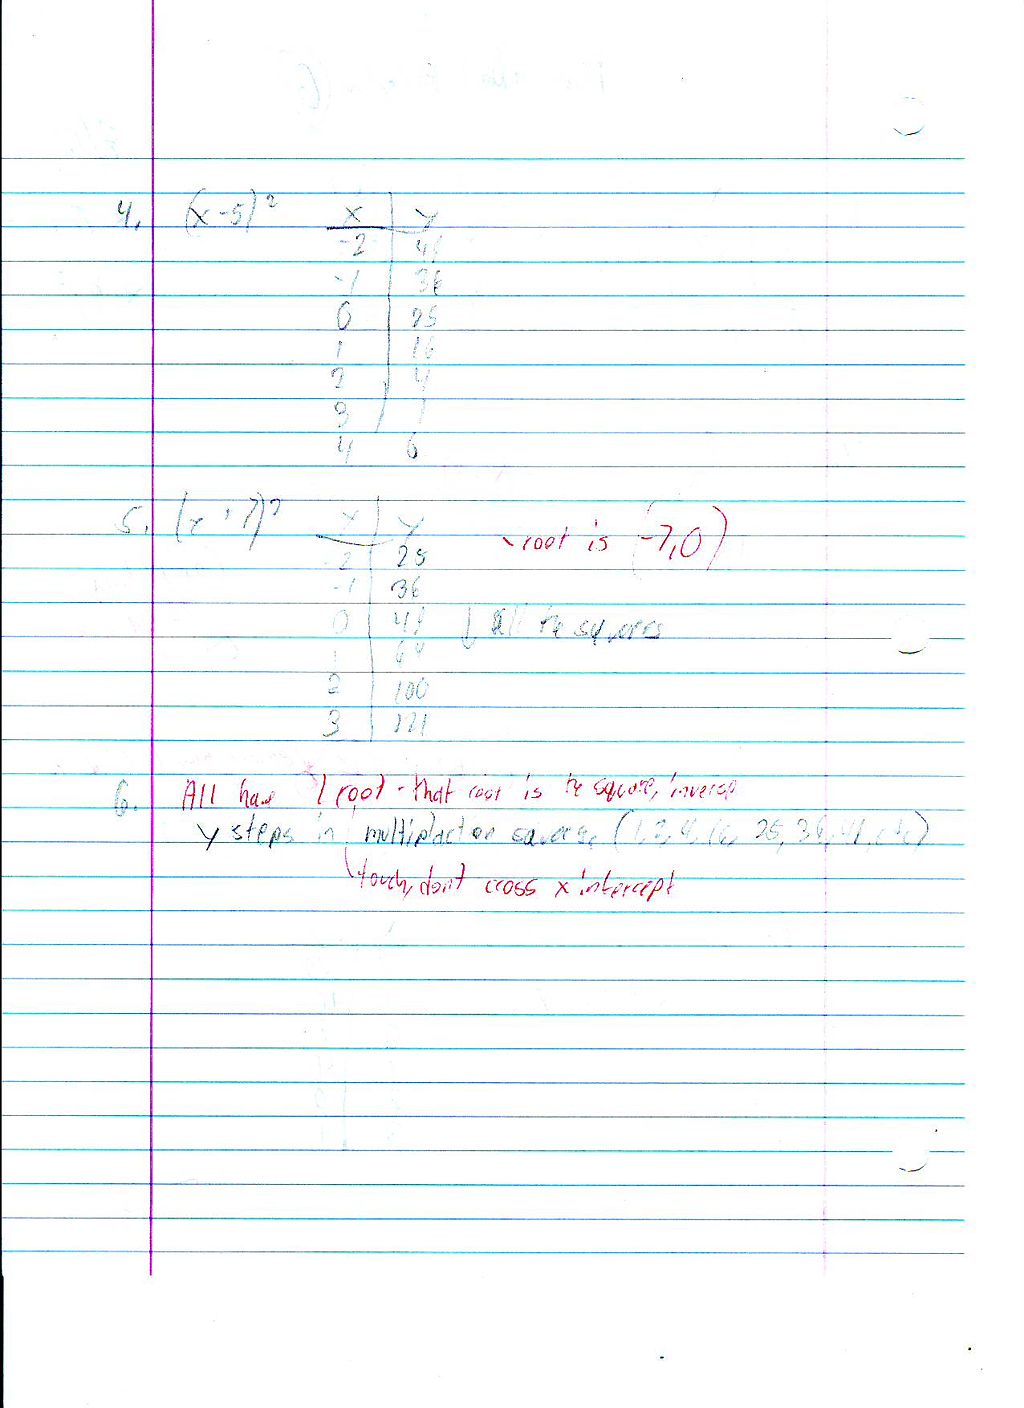 4. (x-5)² x y
-2 49
-1 36
0 25
1 16
2 4
3 1
4 0
5. (x+7)² x y root is (-7,0)
-2 25
-1 36
0 49 ↓ all the squares
1 64
2 100
3 121
6. All have 1 root - that root is the square, inverse
y steps in
touch, don't cross x intercept